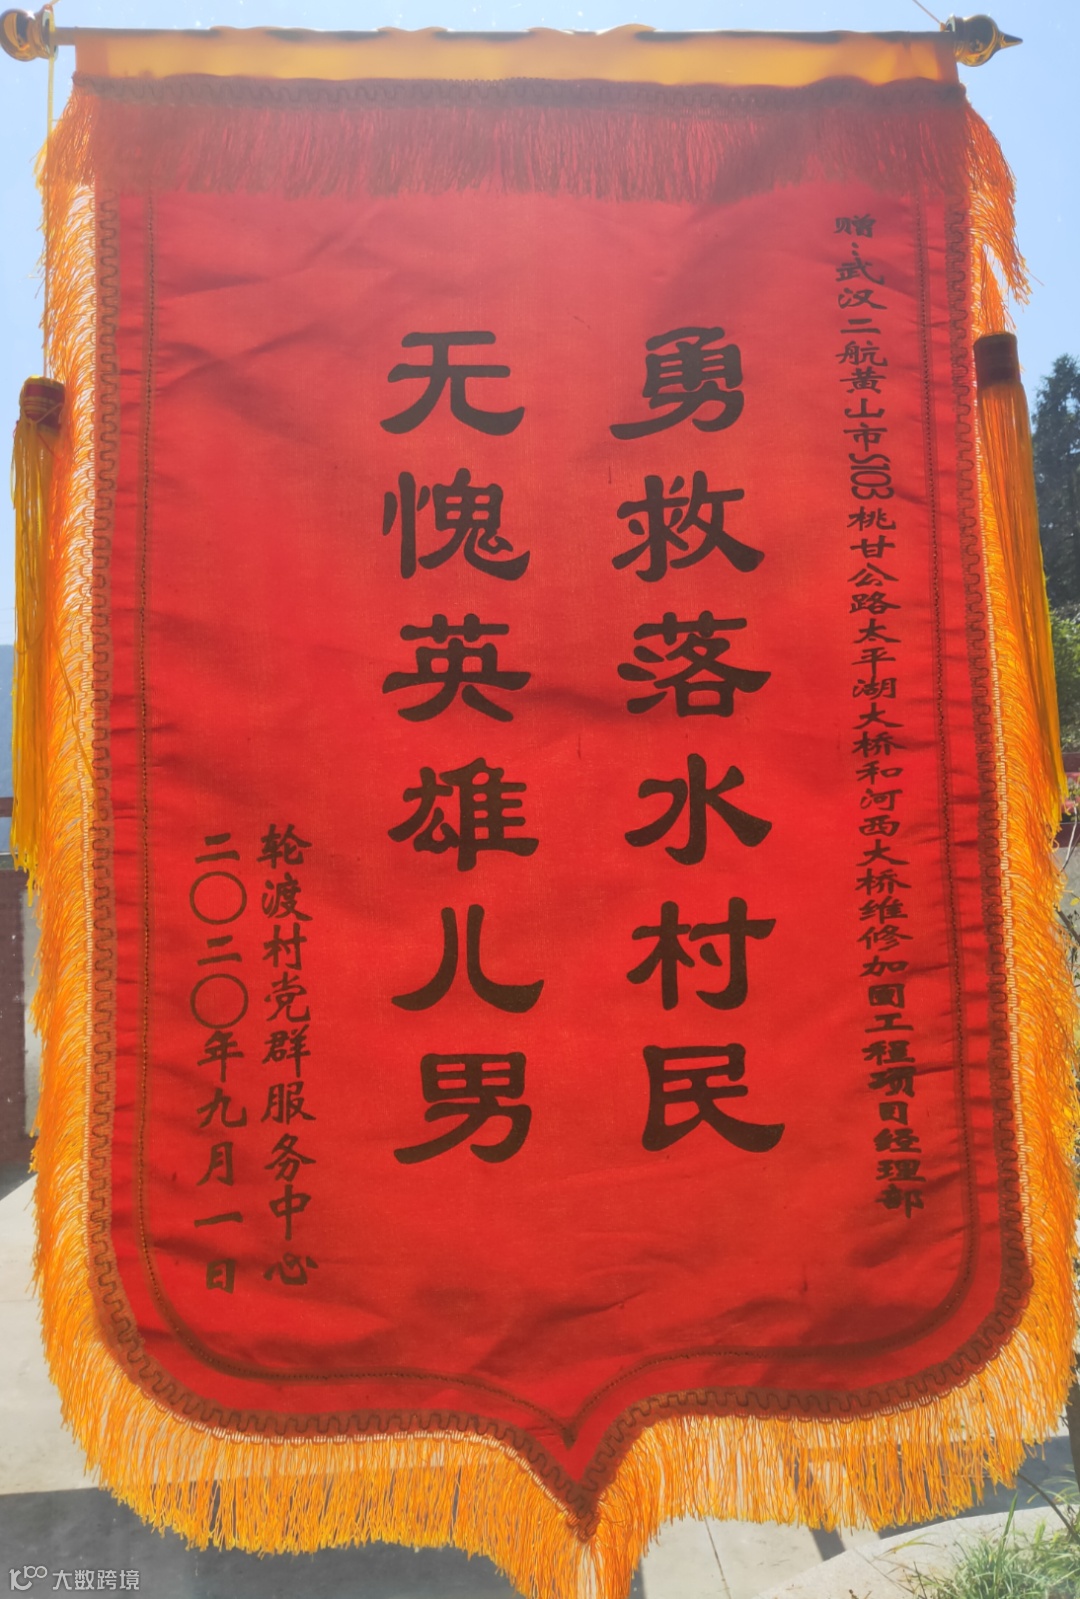 赠：武汉二航黄山市S103桃甘公路太平湖大桥和河西大桥维修加固工程项目经理部
勇救落水村民
无愧英雄儿男
轮渡村党群服务中心
二〇二〇年九月一日
大数跨境